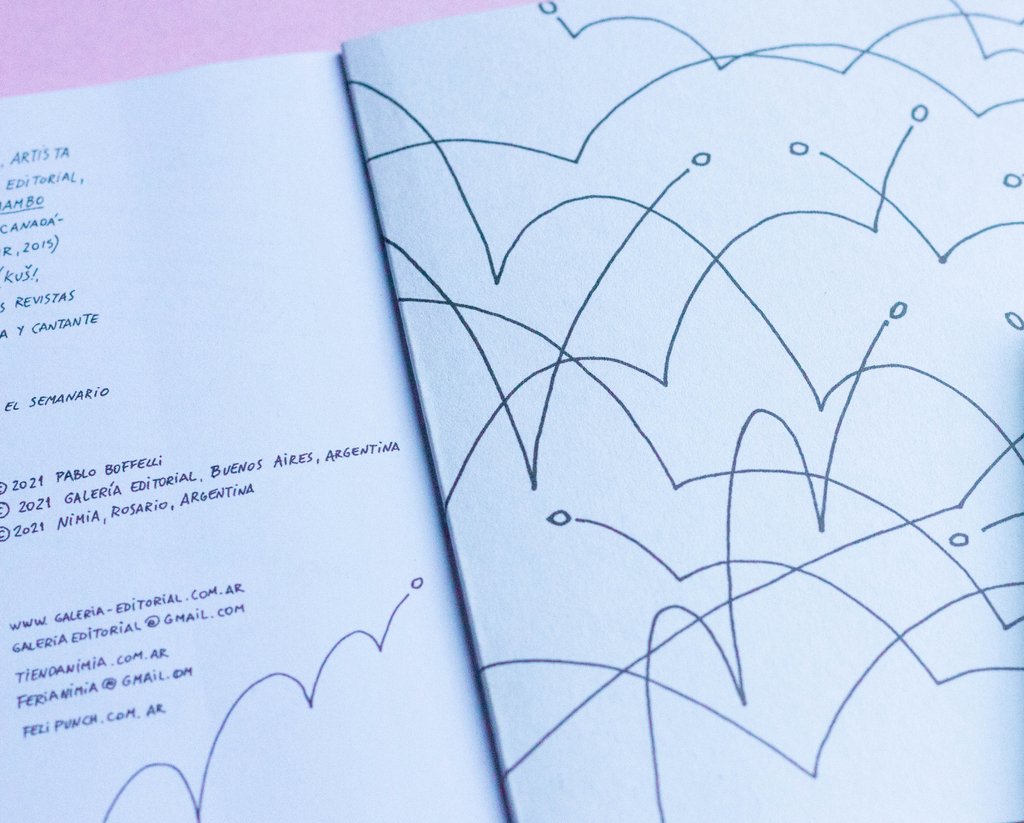 , ARTISTA
EDITORIAL,
MAMBO
CANADÁ-
R, 2015)
(KUŠ!,
S REVISTAS
A Y CANTANTE
EL SEMANARIO
© 2021 PABLO BOFFELLI
© 2021 GALERÍA EDITORIAL, BUENOS AIRES, ARGENTINA
© 2021 NIMIA, ROSARIO, ARGENTINA
WWW.GALERIA-EDITORIAL.COM.AR
GALERIAEDITORIAL@GMAIL.COM
TIENDANIMIA.COM.AR
FERIANIMIA@GMAIL.OM
FELIPUNCH.COM.AR